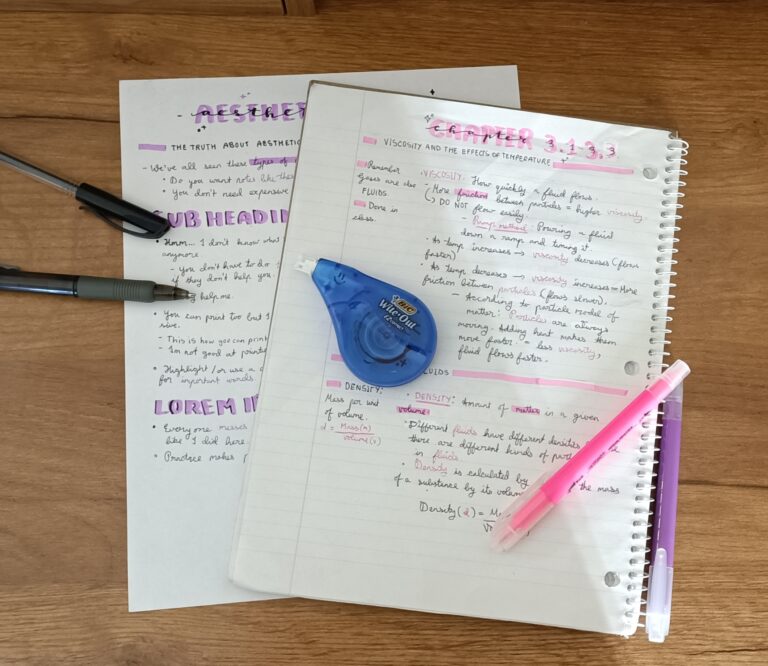 AESTHE
aesthe
THE TRUTH ABOUT AESTHETIC
- We've all seen these types of
• Do you want notes like these
• You don't need expensive
SUB HEADIN
• Hmm... I don't know what
anymore.
- You don't have to do
if they don't help you
help me.
• You can paint too but I
- This is how you can print
- I'm not good at
• Highlight / or use a
for important words.
LOREM I
• Everyone messes
like I did here
• Practice makes
CHAPTER 3.1-3.3
chapter
VISCOSITY AND THE EFFECTS OF TEMPERATURE
Remember
Gases are also
FLUIDS
Done in
class.
• VISCOSITY: How quickly a fluid flows.
- More friction between particles = higher viscosity
DO NOT flow easily.
- Ramp method: Pouring a fluid
down a ramp and timing it.
• As temp increases → viscosity decreases (flows
faster)
• As temp decreases → viscosity increases = More
friction between particles (flows slower).
- According to particle model of
matter: Particles are always
moving. Adding heat makes them
move faster = less viscosity,
fluid flows faster.
BIC
Wite-Out
LUIDS
DENSITY:
Mass per unit
of volume.
d = Mass(m)
volume(v)
• DENSITY: Amount of matter in a given
volume
• Different fluids have different densities
there are different kinds of part
in fluids
• Density is calculated by the mass
of a substance by its volum
Density(d) = M